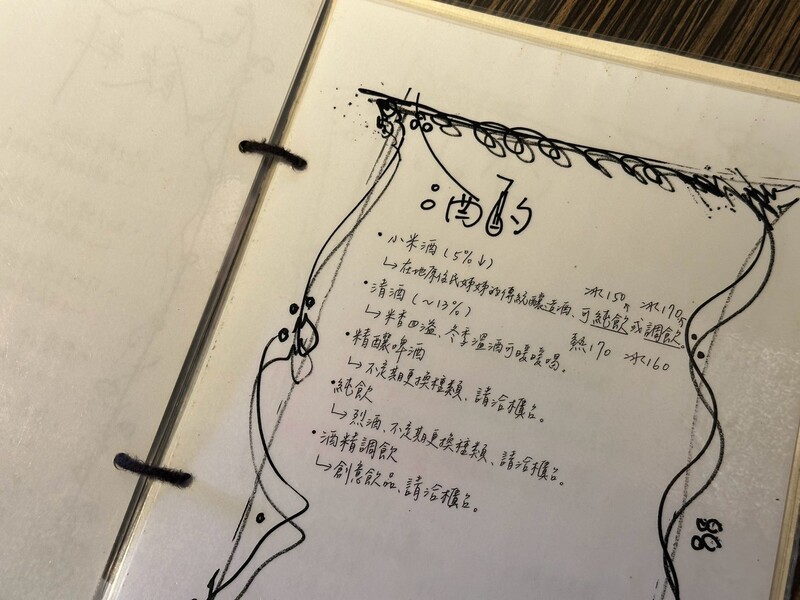 酒酌
•小米酒(5%↓) 冰150元 冰170元
↳在地原住民姊姊的傳統釀造酒、可純飲或調飲。
•清酒(~13%) 熱170 冰160
↳米香四溢、冬季溫酒可暖暖喝。
•精釀啤酒
↳不定期更換種類、請洽櫃台。
•純飲
↳烈酒、不定期更換種類、請洽櫃台。
•酒精調飲
↳創意飲品、請洽櫃台。